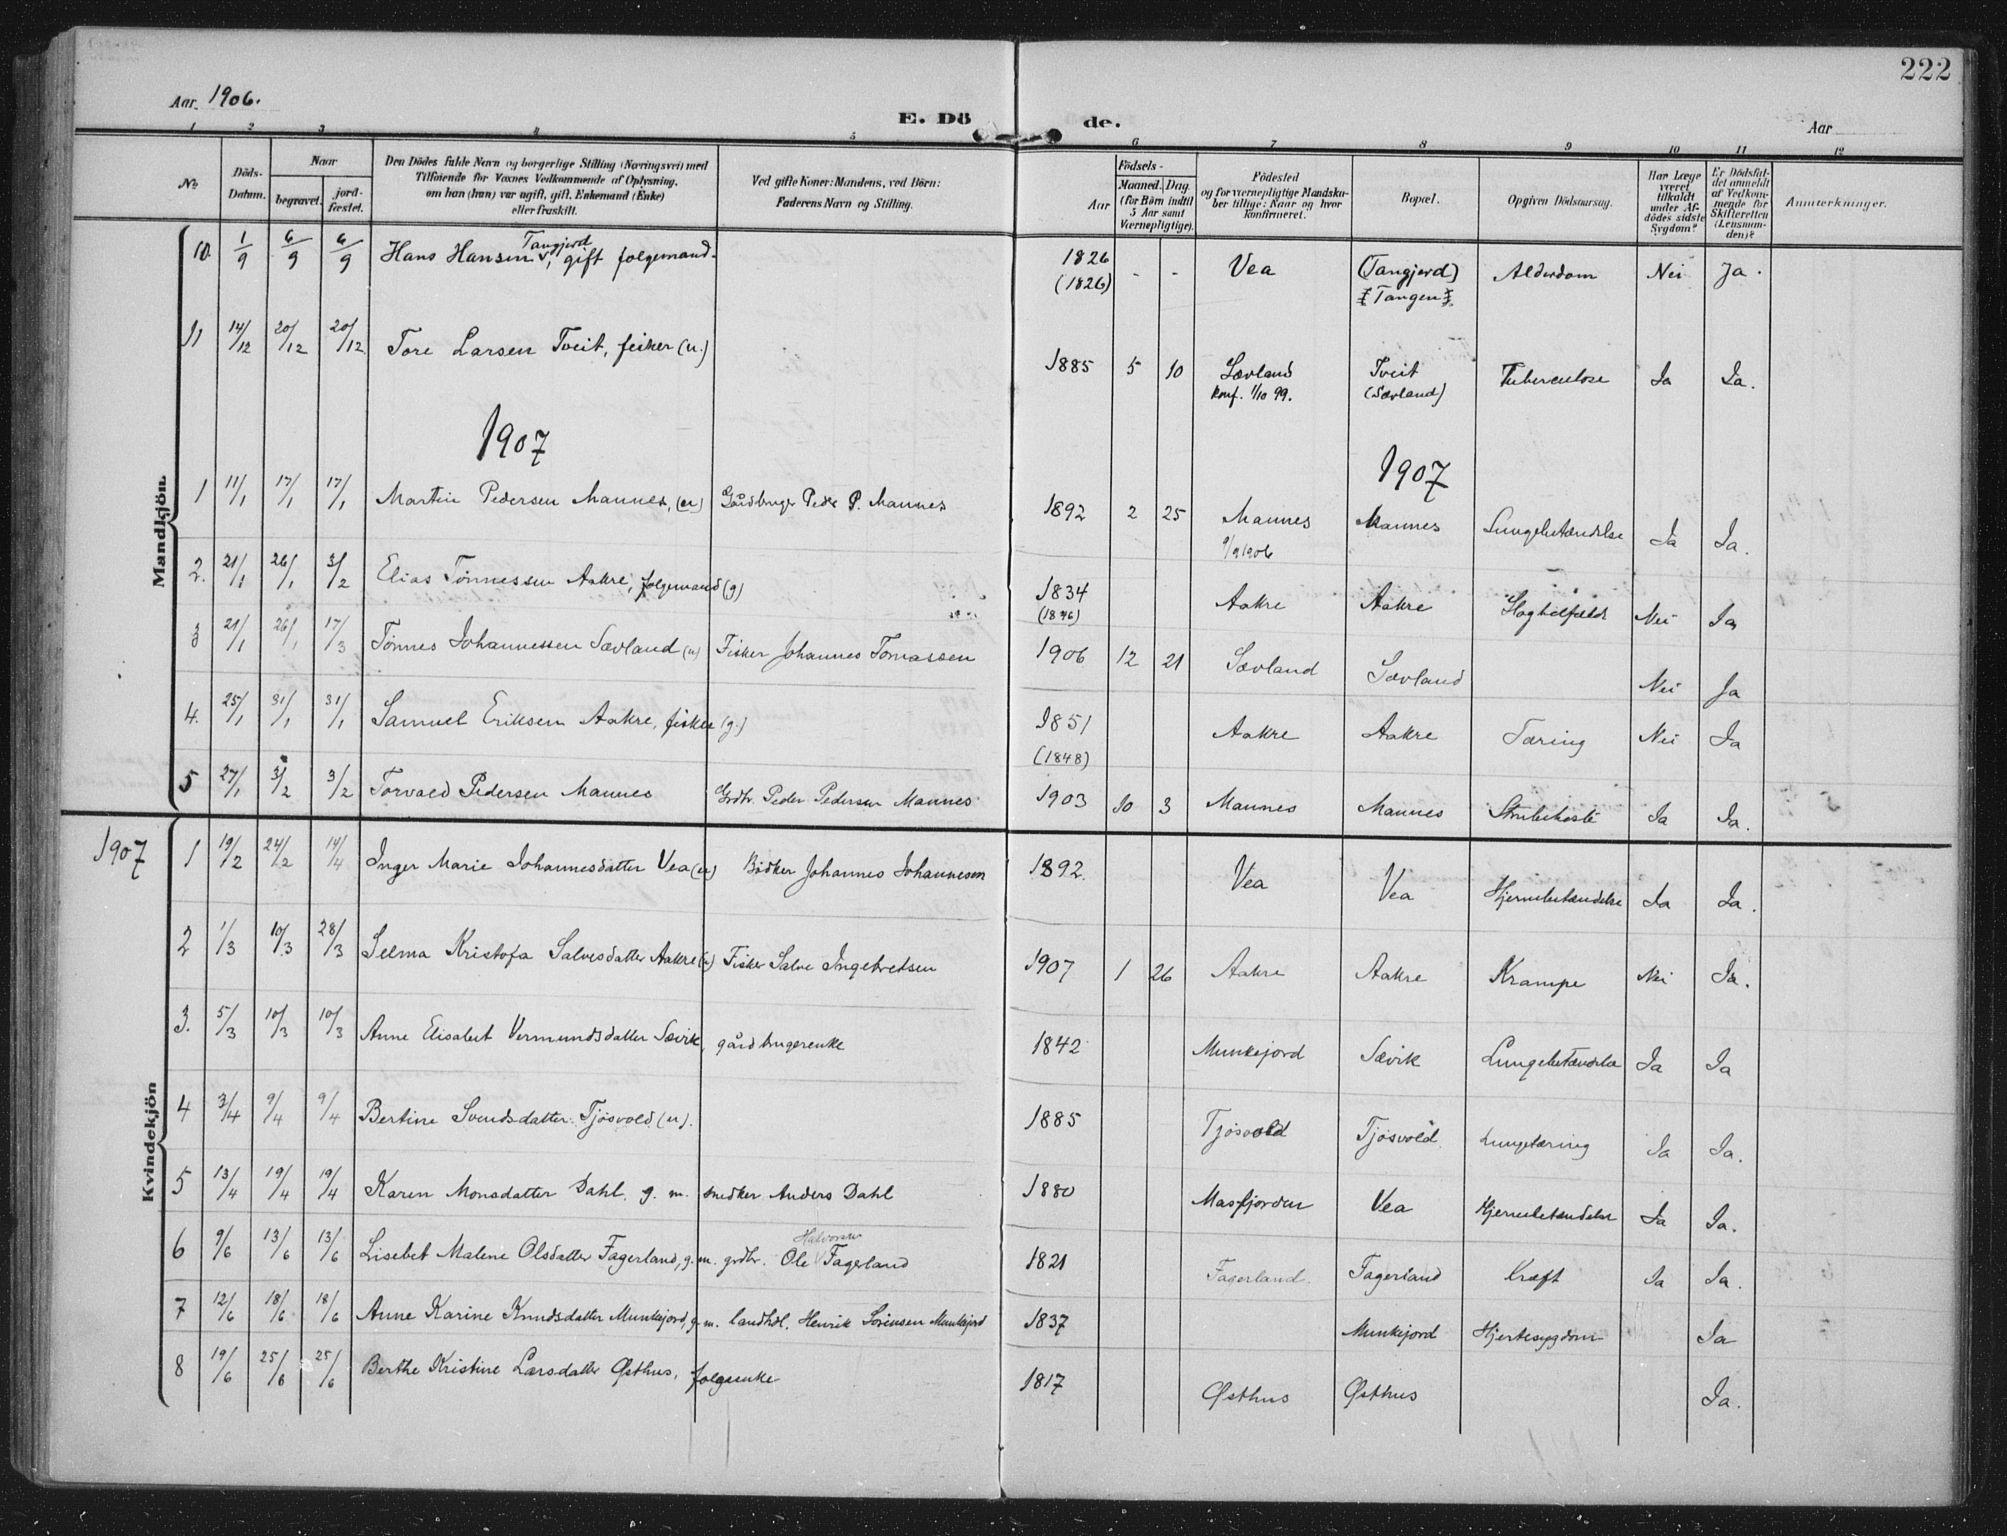 222
Aar 1906.
E. Dö
de.
Aar
1 2 3 4 5 6 7 8 9 10 11 12
No. Döds-Datum. Naar begravet. jordfæstet. Den Dödes fulde Navn og borgerlige Stilling (Næringsvei) med Tilföiende for Voxnes Vedkommende af Oplysning, om han (hun) var ugift, gift, Enkemand (Enke) eller fraskilt. Ved gifte Koner: Mandens, ved Börn: Faderens Navn og Stilling. Aar Födsels- Maaned. Dag. (for Börn indtil 5 Aar samt Værnepligtige). Födested og for værnepligtige Mandskaber tillige: Naar og hvor konfirmeret. Bopæl. Opgiven Dödsaarsag. Har Læge været tilkaldt under Afdödes sidste Sygdom? Er Dödsfaldet anmeldt af Vedkommende for Skifteretten (Lensmanden)? Anmærkninger.
Mandkjön.
10. 1/9 6/9 6/9 Hans Hansen Tangjerd, gift folgemand. 1826 (1826) - - Vea (Tangjerd) Tangen Alderdom Nei Ja.
11 14/12 20/12 20/12 Tore Larsen Tveit, fisker (u.) 1885 5 10 Sævland konf. 1/10 99. Tveit (Sævland) Tuberculose Ja Ja.
1907 1907
1 11/1 17/1 17/1 Martin Pedersen Mannes, (u) Gårdbruger Peder P. Mannes 1892 2 25 Mannes 9/9 1906 Mannes Lungebetændelse Ja Ja.
2. 21/1 26/1 3/2 Elias Tönnessen Aakre, folgemand (g) 1834 Aakre Aakre Nei Ja
3 21/1 26/1 17/3 Tönnes Johannessen Sævland (u) Fisker Johannes Tomassen 1906 12 21 Sævland Sævland Nei Ja
4. 25/1 31/1 31/1 Samuel Eriksen Aakre, fisker (g.) 1851 (1848) Aakre Aakre Tæring Nei Ja
5 27/1 3/2 3/2 Torvald Pedersen Mannes Grdbr. Peder Pedersen Mannes 1903 10 3 Mannes Mannes Strubehoste Ja Ja.
1907
Kvindekjön
1 19/2 24/2 14/4 Inger Marie Johannesdatter Vea (u) Bödker Johannes Johannesen 1892. Vea Vea Hjernebetændelse Ja Ja.
2 1/3 10/3 28/3 Selma Kristofa Salvesdatter Aakre (u) Fisker Salve Ingebretsen 1907 1 26 Aakre Aakre Krampe Nei Ja.
3. 5/3 10/3 10/3 Anne Elisabet Vermundsdatter Sævik, gårdbrugerenke 1842 Munkejord Sævik Lungebetændelse Ja Ja
4 3/4 9/4 9/4 Bertine Svendsdatter Tjösvold (u). 1885 Tjösvold Tjösvold Lungetæring Ja Ja.
5 13/4 19/4 19/4 Karen Monsdatter Dahl. g. m. snedker Anders Dahl 1880 Masfjorden Vea Hjernebetændelse Ja Ja.
6 9/6 13/6 13/6 Lisebet Malene Olsdatter Fagerland, g. m. grdbr. Ole Halvorsen Fagerland 1821 Fagerland. Fagerland Kræft Ja Ja.
7 12/6 18/6 18/6 Anne Karine Knudsdatter Munkejord, g. m. landhdl. Henrik Sörensen Munkejord 1837 Munkejord Hjertesygdom Ja
8 19/6 25/6 25/6 Berthe Kristine Larsdatter Østhus, folgeenke 1817 Østhus Østhus Ja.